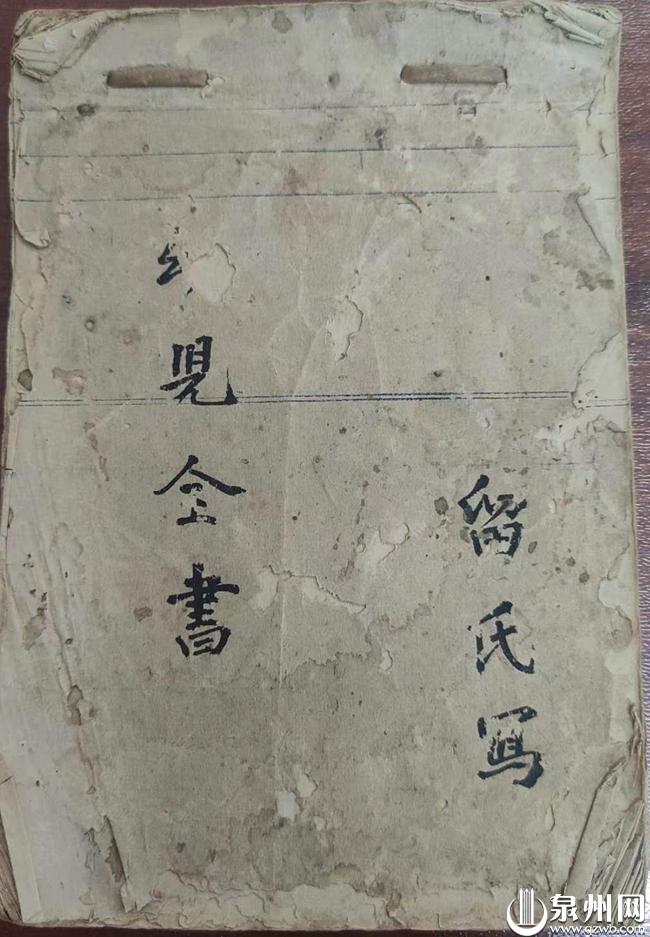 留氏寫
兒全書
泉州网
www.qzwb.com